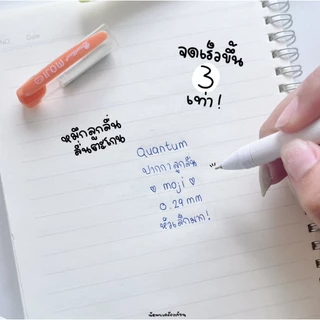 จดเร็วขึ้น
3
เท่า!
หมึกลูกลื่น
ลื่นตะเกน
Quantum
ปากกาลูกลื่น
♡ moji ♡
0.29 mm
หัวเล็กมาก!